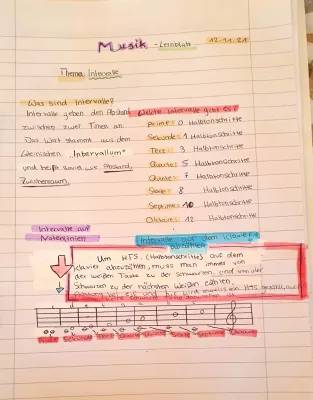 Musik - Lernblatt
12.11.21
Thema: Intervalle
Was sind Intervalle?
Intervalle geben den Abstand
zwischen zwei Tönen an.
Das Wort stammt aus dem
lateinischen "Intervallum"
und heißt soviel wie Abstand,
Zwischenraum.
Welche Intervalle gibt es?
Prime: 0 Halbtonschritte
Sekunde: 1 Halbtonschritte
Terz: 3 Halbtonschritte
Quarte: 5 Halbtonschritte
Quinte: 7 Halbtonschritte
Sexte: 8 Halbtonschritte
Septime: 10 Halbtonschritte
Oktave: 12 Halbtonschritte
Intervalle auf
Notenlinien
Intervalle auf dem Klavier
abzählen
Um HTS. (Halbtonschritte) auf dem
Klavier abzuzählen, muss man immer von
der weißen Taste zu der schwarzen, und von der
Schwarzen zu der nächsten weißen zählen.
Prime Sekunde Terz Quarte Quinte Sexte Septime Oktave